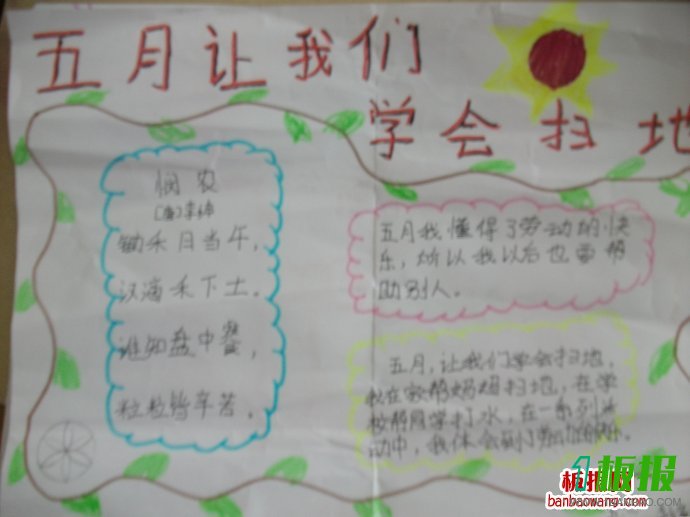 五月让我们
学会扫地
悯农
(唐)李绅
锄禾日当午，
汗滴禾下土。
谁知盘中餐，
粒粒皆辛苦。
五月我懂得了劳动的快
乐，所以我以后也要帮
助别人。
五月，让我们学会扫地，
我在家帮妈妈扫地，在学
校帮同学打水，在一系列劳
动中，我体会到了劳动的快乐。
板报网
banbaowang.com
板报